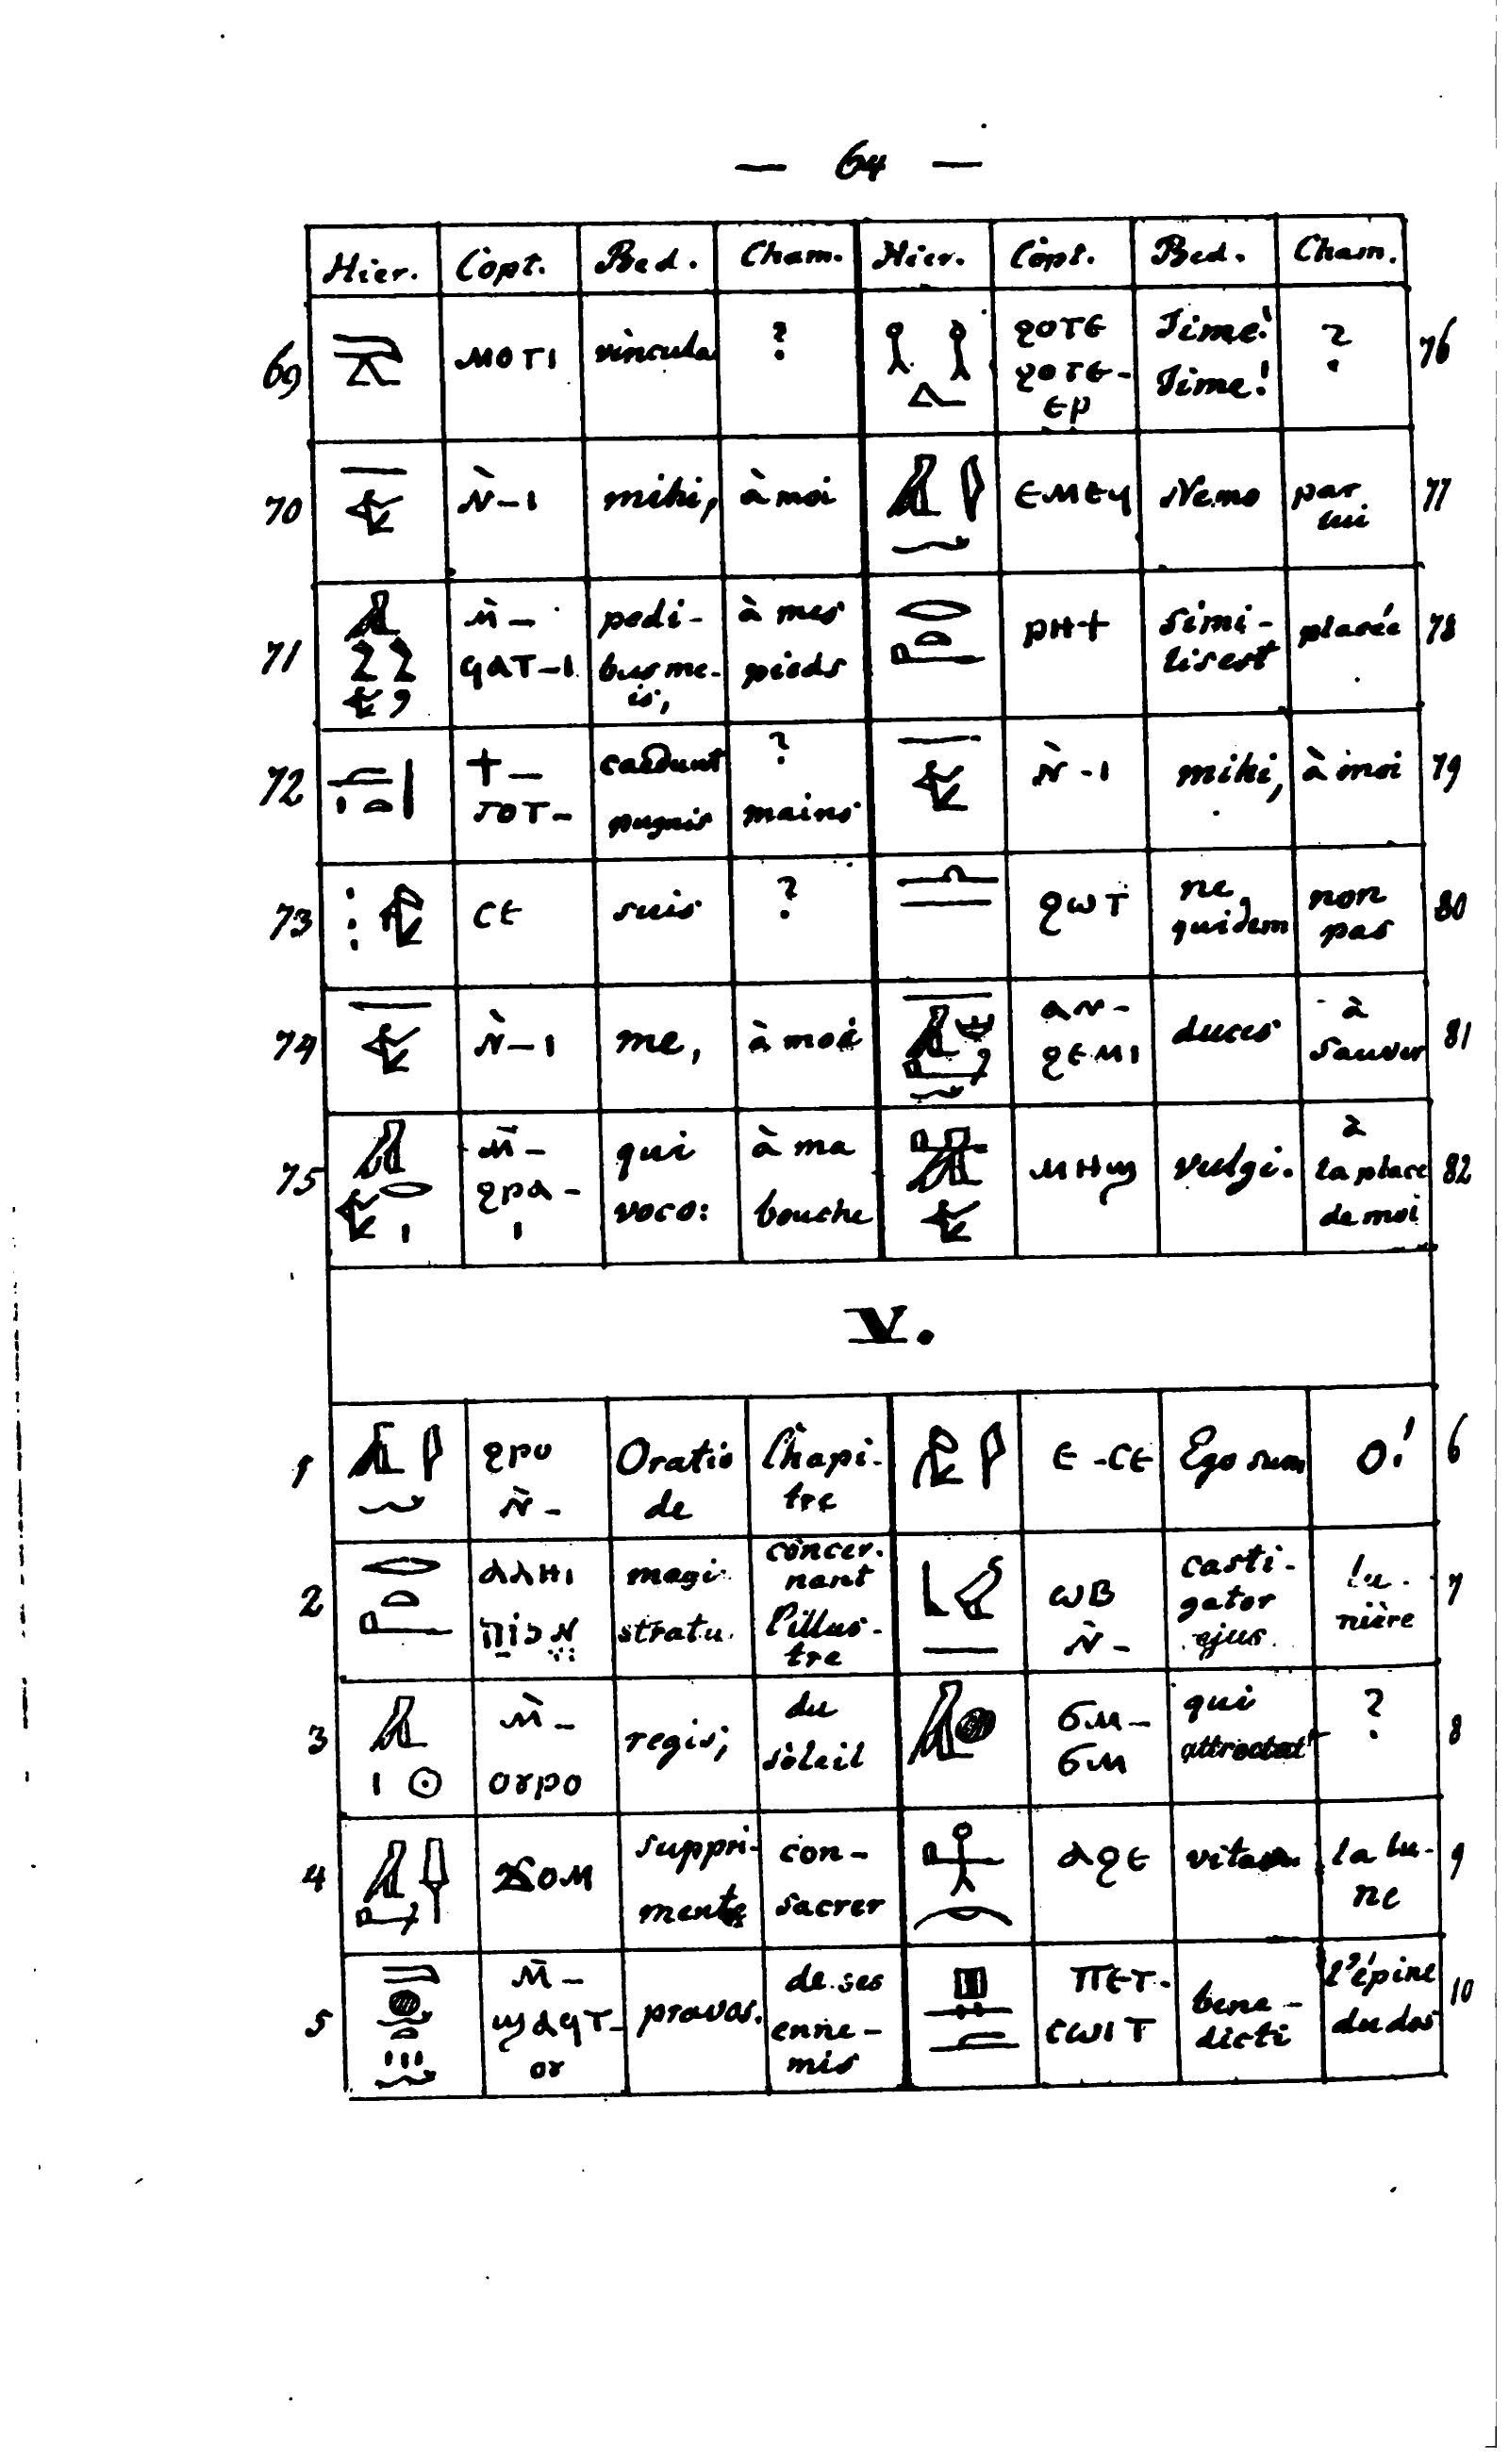 — 64 —
Hier. Copt. Bed. Cham. Hier. Copt. Bed. Cham.
69 ⲙⲟⲧⲓ vincula ? ϩⲟⲧⲉ ϩⲟⲧⲉ-ⲉⲣ Time! Time! ? 76
70 ⲛ̀-ⲓ mihi, à moi ⲉⲙⲉϥ Nemo par lui 77
71 ⲙ̀-ϥⲁⲧ-ⲓ pedi-bus me-is, à mes pieds ⲣⲏϯ simi-lis est placée 78
72 ϯ-ⲧⲟⲧ- caedunt pugnis ? mains ⲛ̀-ⲓ mihi, à moi 79
73 ⲥⲉ suis ? ϩⲱⲧ ne quidem non pas 80
74 ⲛ̀-ⲓ me, à moi ⲁⲛ-ϩⲉⲙⲓ duces à sauver 81
75 ⲙ̀-ϩⲣⲁ-ⲓ qui voco: à ma bouche ⲙⲏϣ vulgi. à la place de moi 82
V.
1 ϩⲣⲟ ⲛ̀- Oratio de Chapi-tre ⲉ-ⲥⲉ Ego sum O! 6
2 ⲁⲗⲏⲓ magi-stratu. concer-nant l'illus-tre ⲱⲃ ⲛ̀- casti-gator ejus lu-mière 7
3 ⲙ̀-ⲟⲩⲣⲟ regis; du soleil ϭⲙ-ϭⲙ qui attrectat ? 8
4 ϫⲟⲙ suppri-mente con-sacrer ⲁϩⲉ vitam la lu-ne 9
5 ⲙ̄-ϣⲁϥⲧ-ⲟⲩ pravos. de ses enne-mis ⲡⲉⲧ-ⲥⲱⲓⲧ bene-dicti l'épine du dos 10